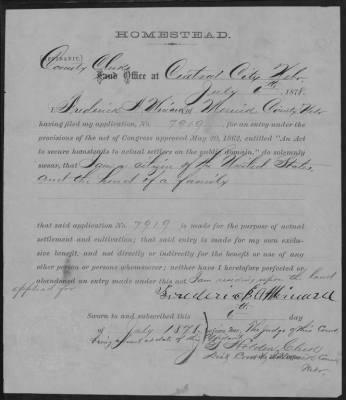 HOMESTEAD.
(AFFIDAVIT.)
County Clerks
Land Office at Central City Neb.
July 6th, 1878.
I, Frederick A of Merrick County Neb
having filed my application, No. 7919 for an entry under the
provisions of the act of Congress approved May 20, 1862, entitled "An Act
to secure homesteads to actual settlers on the public domain," do solemnly
swear, that I am a citizen of the United States,
and the head of a family
that said application No. 7919 is made for the purpose of actual
settlement and cultivation; that said entry is made for my own exclu-
sive benefit, and not directly or indirectly for the benefit or use of any
other person or persons whomsoever; neither have I heretofore perfected or
abandoned an entry made under this act I am residing upon the land
applied for
Frederick A
Sworn to and subscribed this 6th day
of July 1878, before me, The Judge of this Court
being absent at date of this
Holden Clerk
Dist Court Merrick Co
Neb.